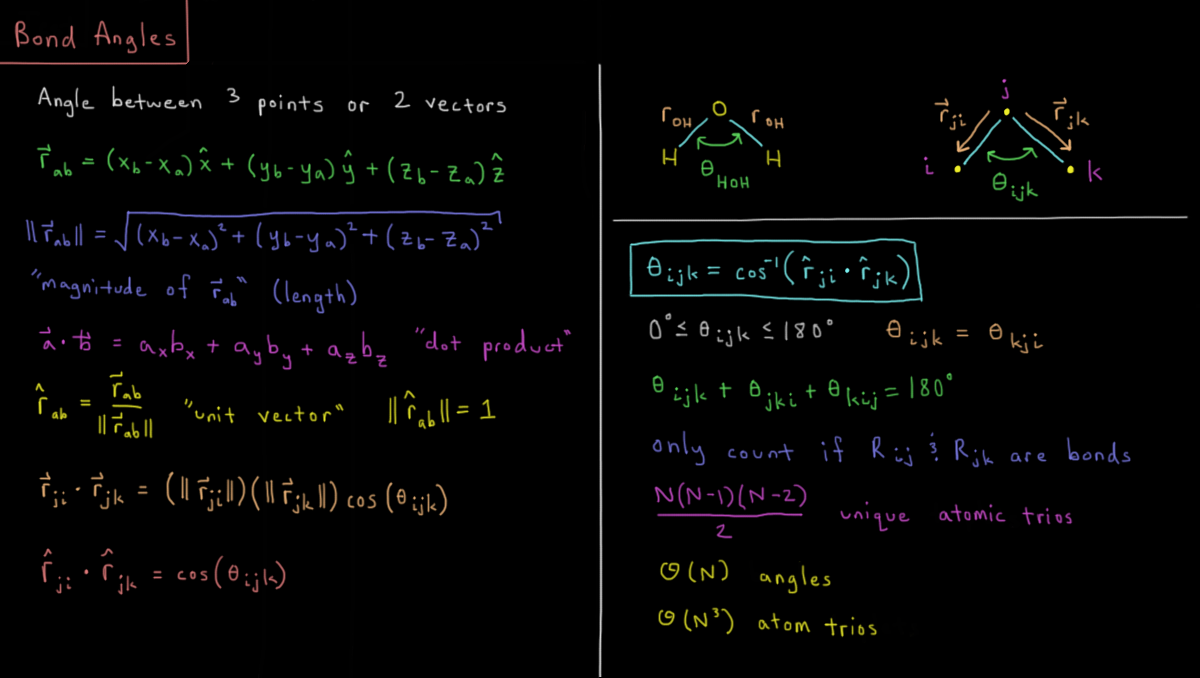 Bond Angles
Angle between 3 points or 2 vectors
r⃗ab = (xb-xa)x̂ + (yb-ya)ŷ + (zb-za)ẑ
‖r⃗ab‖ = √((xb-xa)² + (yb-ya)² + (zb-za)²)
"magnitude of r⃗ab" (length)
a⃗·b⃗ = axbx + ayby + azbz "dot product"
r̂ab = r⃗ab / ‖r⃗ab‖ "unit vector" ‖r̂ab‖ = 1
r⃗ji · r⃗jk = (‖r⃗ji‖)(‖r⃗jk‖) cos(θijk)
r̂ji · r̂jk = cos(θijk)
rOH O rOH
H H
θHOH
j
r⃗ji r⃗jk
i k
θijk
θijk = cos⁻¹(r̂ji · r̂jk)
0° ≤ θijk ≤ 180° θijk = θkji
θijk + θjki + θkij = 180°
only count if Rij & Rjk are bonds
N(N-1)(N-2) / 2 unique atomic trios
O(N) angles
O(N³) atom trios